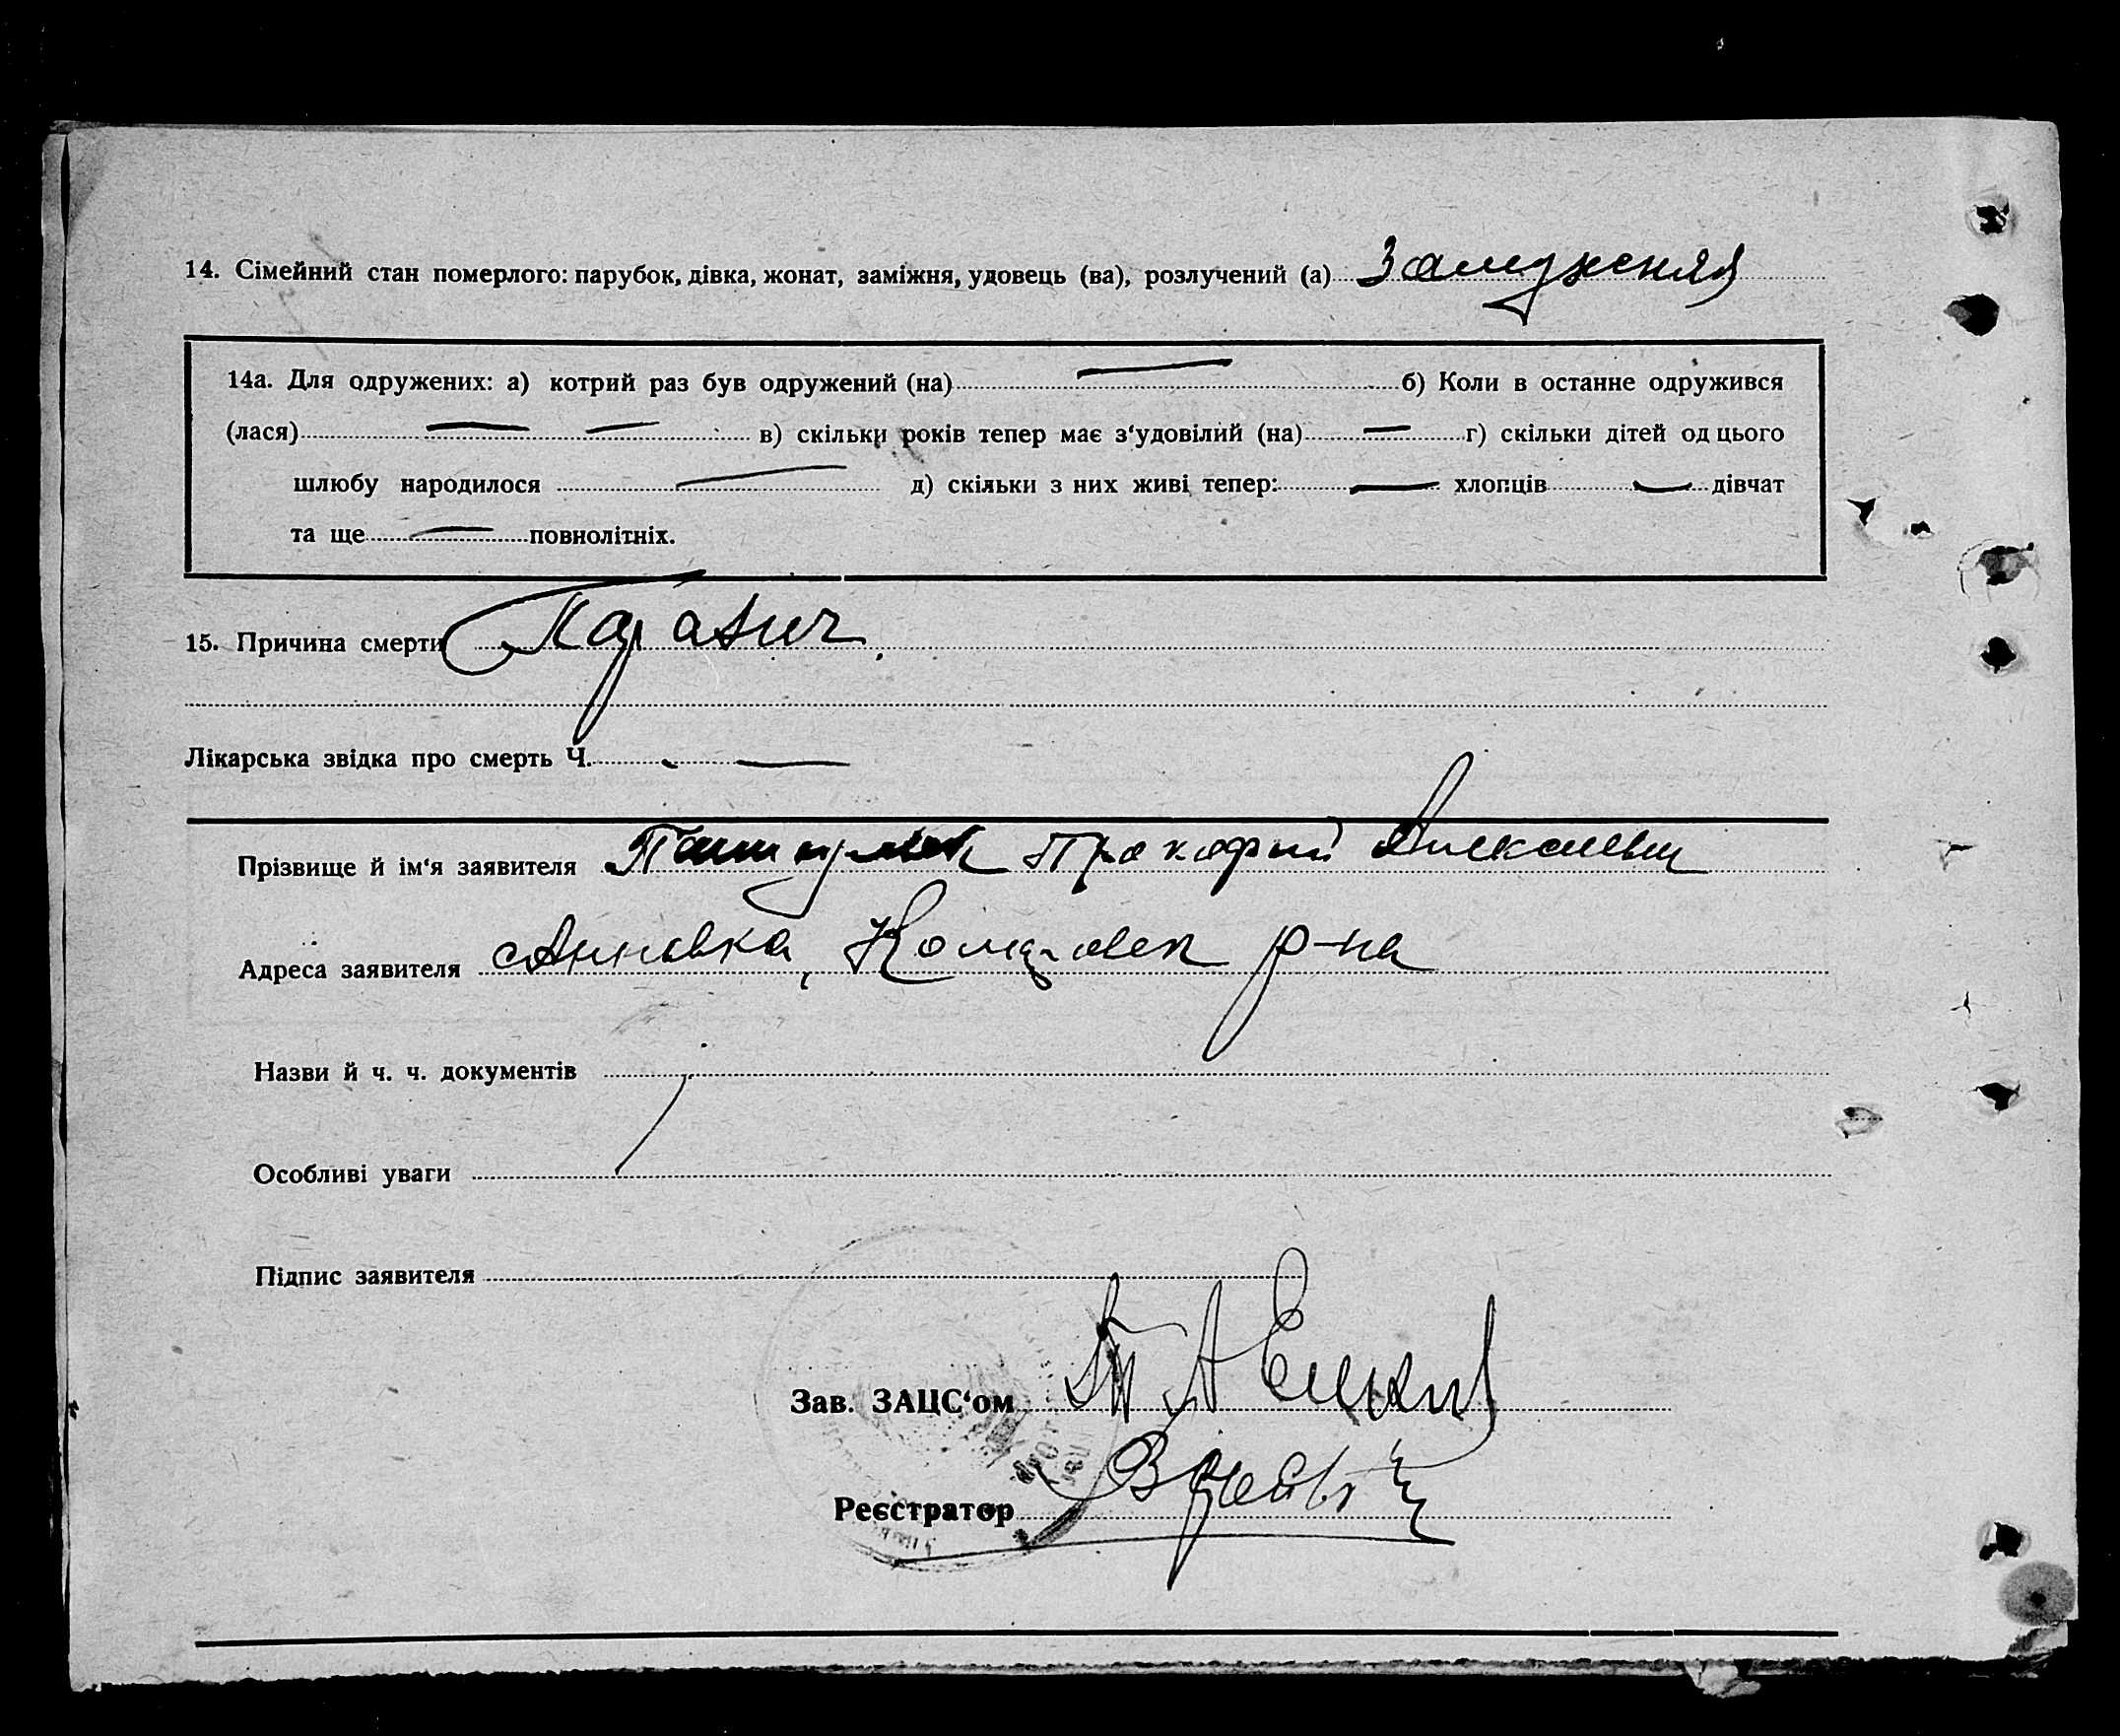 14. Сімейний стан померлого: парубок, дівка, жонат, заміжня, удовець (ва), розлучений (а) Замужняя
14а. Для одружених: а) котрий раз був одружений (на) — б) Коли в останне одружився
(лася) — — в) скільки років тепер має з'удовілий (на) — г) скільки дітей од цього
шлюбу народилося — д) скільки з них живі тепер: — хлопців — дівчат
та ще — повнолітніх.
15. Причина смерти
Лікарська звідка про смерть Ч. —
Прізвище й ім'я заявителя Прокофий
Адреса заявителя Анновка, р-на
Назви й ч. ч. документів
Особливі уваги
Підпис заявителя
Зав. ЗАЦС'ом
Реєстратор